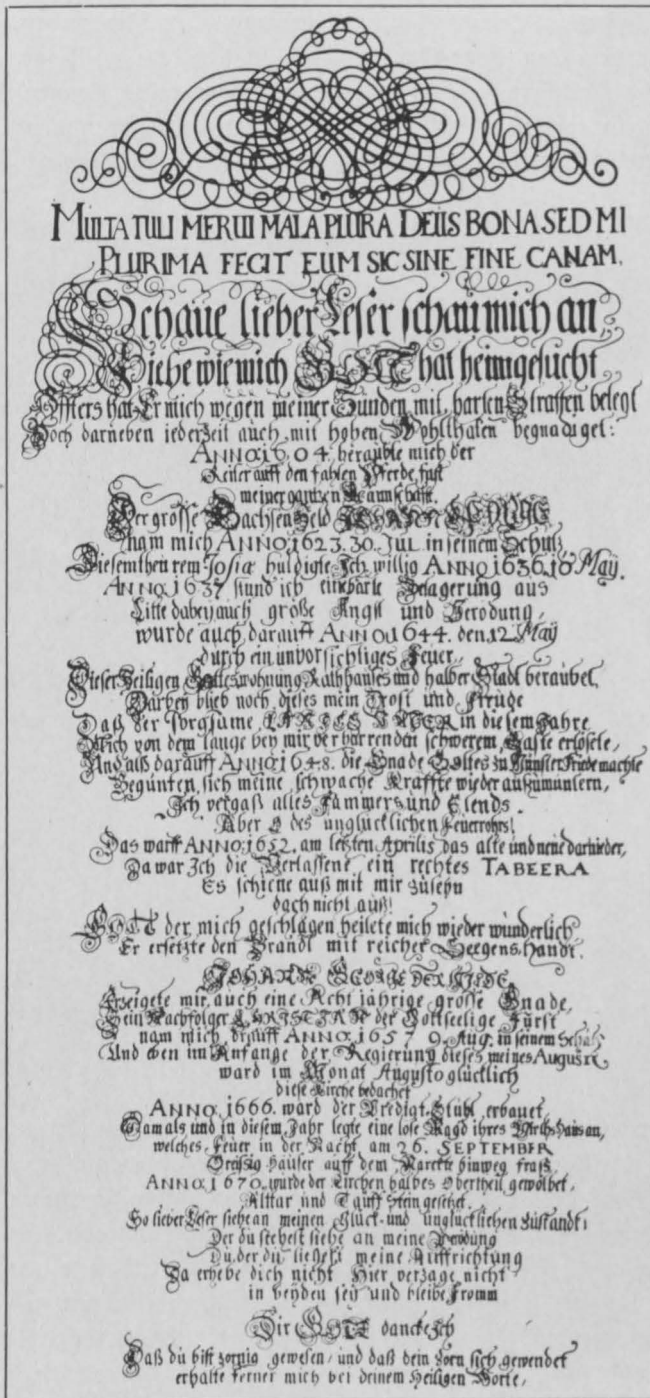 MULTA TULI MERUI MALA PLURA DEUS BONA SED MI
PLURIMA FECIT EUM SIC SINE FINE CANAM.
Schaue lieber Leser schau mich an,
Siehe wie mich GOTT hat heimgesucht
Öffters hat Er mich wegen meiner Sunden mit harten Straffen belegt
Doch darneben iederzeit auch mit hohen Wohlthaten begnadiget:
ANNO, 1604. beraubte mich der
Reuter auff den fahlen Pferde fast
meiner gantzen Mannschafft.
Der grosse Sachsen Held JOHANN GEORGE
nam mich ANNO, 1623. 30. JUL. in seinem Schutz,
Diesem theurem Josiæ huldigte Ich willig ANNO, 1636, 16 Maÿ.
ANNO, 1637 stund ich eine harte Belagerung aus
Litte dabey auch große Angst und Verödung,
wurde auch darauff ANNO, 1644. den 12 Maÿ
durch ein unvorsichtiges Feuer,
Dieser Heiligen Gotteswohnung Rathhauses und halber Stadt beraubet,
Darbey blieb noch dieses mein Trost und Freude
Daß der sorgsame VATER in diesem Jahre
Mich von dem lange bey mir verharrenden schwerem Gaste erlösete,
Und alß darauff ANNO, 1648. die Gnade Gottes zu Münster Friede machte
Begunten sich meine schwache Kraffte wieder aufzumuntern,
Ich vergaß alles Jammers und Elends.
Aber O des unglücklichen Feuerrohrs!
Das warff ANNO, 1652. am letzten Aprilis das alte und neue darnieder,
Da war Ich die Verlassene ein rechtes TABEERA
Es schiene auß mit mir zu seyn
doch nicht auß!
GOTT der mich geschlagen heilete mich wieder wunderlich
Er ersetzte den Brandt mit reicher Seegens Handt.
JOHANN GEORGE DER
Erzeigete mir auch eine Acht jährige grosse Gnade,
Sein Nachfolger CHRISTIAN der Gottseelige Fürst
nam mich drauff ANNO, 1657 9. Aug. in seinem Schutz
Und eben im Anfange der Regierung dieses meines Augusti
ward im Monat Augusto glücklich
diese Kirche bedachet
ANNO, 1666. ward der Predigt-Stuhl erbauet,
Damals und in diesem Jahr legte eine lose Magd ihres Wirths Haus an,
welches Feuer in der Nacht am 26. SEPTEMBER
Dreißig Häuser auff dem Marckte hinweg fraß.
ANNO, 1670. wurde der Kirchen halbes Obertheil gewölbet,
Alttar und Tauff Stein gesetzet.
So lieber Leser siehe an meinen Glück- und unglücklichen Zustandt,
Der du stehest siehe an meine
Du, der du liegest meine Auffrichtung
Da erhebe dich nicht Hier verzage nicht
in beyden sey und bleibe fromm
Dir GOTT dancke Ich
Daß du bist zornig gewesen, und daß dein Zorn sich gewendet
erhalte ferner mich bei deinem Heiligen Worte,